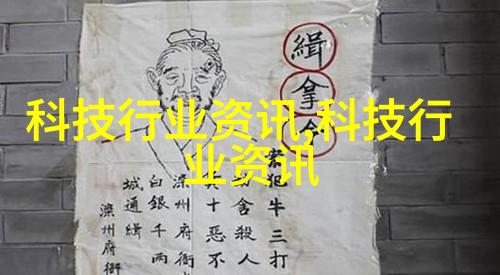 科技行业资讯,科技行
业资讯
緝拿令
案犯牛三打
舍殺人
十惡不
滦州府衙
白銀千两
城通緝
滦州府衙